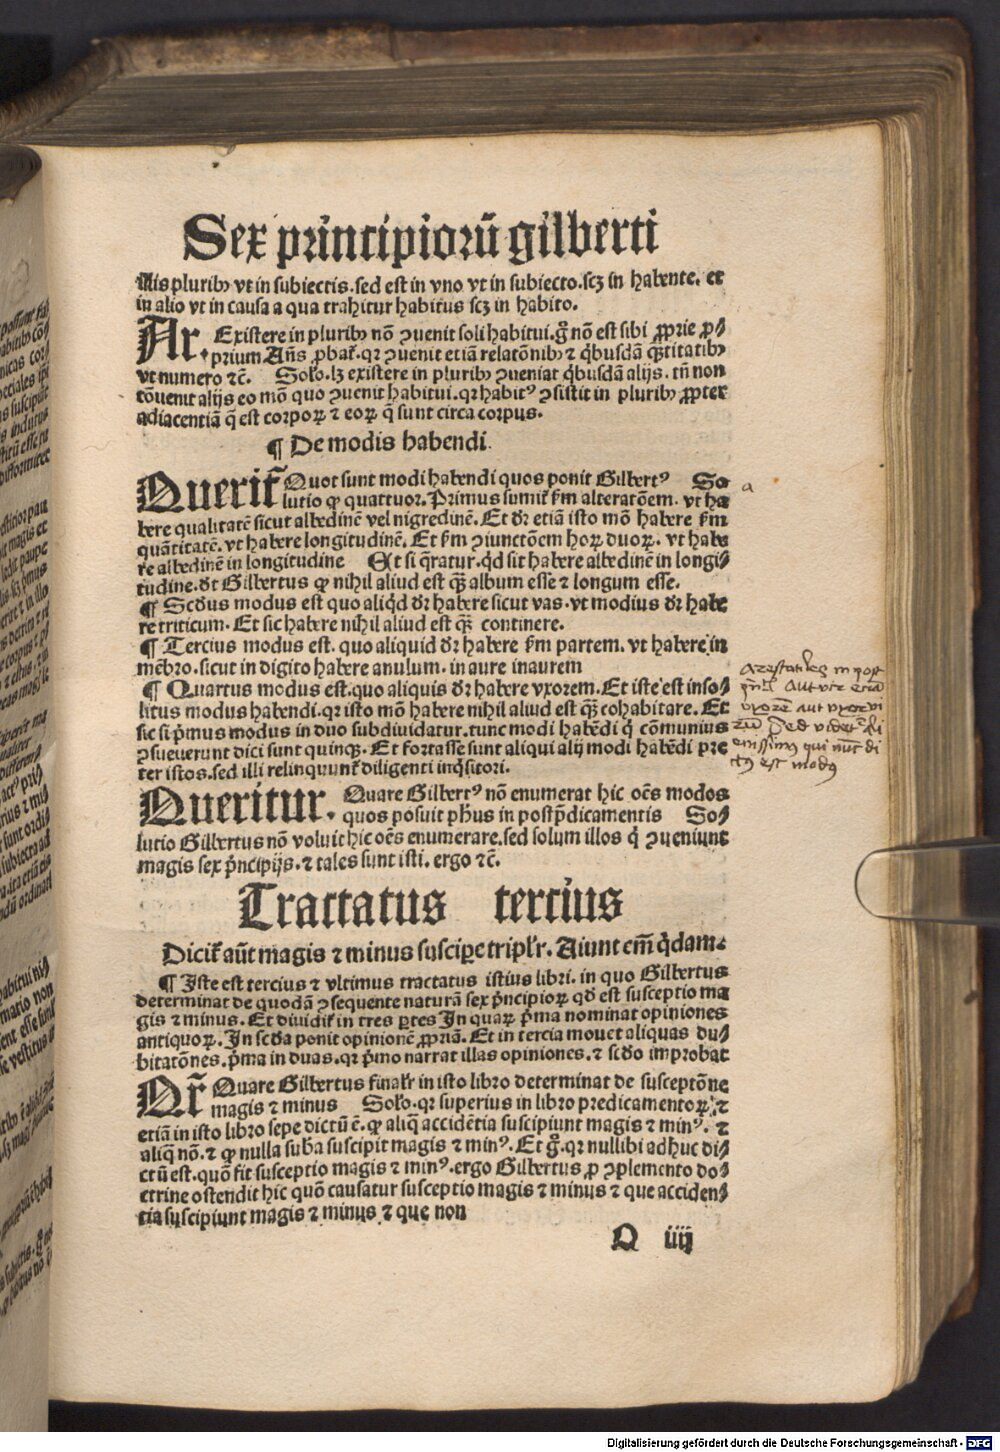 Sex principiorū gilberti
Alis pluribꝰ vt in subiectis. sed est in vno vt in subiecto. scꝫ in habente. et
in alio vt in causa a qua trahitur habitus scꝫ in habito.
Ar. Existere in pluribꝰ nō ꝯuenit soli habitui. gͦ nō est sibi ꝓprie ꝓ⸗
prium Añs ꝓbat̃. qꝛ ꝯuenit etiā relatōnibꝰ ⁊ q̇busdā q̄titatibꝰ
vt numero ⁊c̄. Solo. lꝫ existere in pluribꝰ ꝯueniat q̇busdā alijs. tñ non
cōuenit alijs eo mō quo ꝯuenit habitui. qꝛ habitꝰ ꝯsistit in pluribꝰ ꝓpter
adiacentiā q̄ est corpoꝝ ⁊ eoꝝ q̄ sunt circa corpus.
¶ De modis habendi.
Querit̃ Quot sunt modi habendi quos ponit Gilbertꝰ So
lutio ꝙ quattuor. Primus sumit̃ ẜm alteratōem. vt ha
bere qualitatē sicut albedinē vel nigredinē. Et dr̄ etiā isto mō habere ẜm
quātitatē. vt habere longitudinē. Et ẜm ꝯiunctōem hoꝝ duoꝝ. vt habe
re albedinē in longitudine Et si q̄ratur. qd̓ sit habere albedinē in longi⸗
tudine. dt̄ Gilbertus ꝙ nihil aliud est qꝫ̄ album esse ⁊ longum esse.
¶ Scd̓us modus est quo aliqd̓ dr̄ habere sicut vas. vt modius dr̄ habe
re triticum. Et sic habere nihil aliud est qꝫ̄ continere.
¶ Tercius modus est. quo aliquid dr̄ habere ẜm partem. vt habere in
mēbro. sicut in digito habere anulum. in aure inaurem
¶ Quartus modus est. quo aliquis dr̄ habere vxorem. Et iste est inso⸗
litus modus habendi. qꝛ isto mō habere nihil aliud est qꝫ̄ cohabitare. Et
sic si p̄mus modus in duo subdiuidatur. tunc modi habēdi q̇ cōmunius
ꝯsueuerunt dici sunt quinqꝫ. Et fortasse sunt aliqui alij modi habēdi pre
ter istos. sed illi relinquunt̃ diligenti inq̇sitori.
Queritur. Quare Gilbertꝰ nō enumerat hic oēs modos
quos posuit ph̄us in postp̄dicamentis So⸗
lutio Gilbertus nō voluit hic oēs enumerare. sed solum illos q̇ ꝯueniunt
magis sex p̄ncipijs. ⁊ tales sunt isti. ergo ⁊c̄.
a
Arestatiles in post
Aut vtr etiā
vxorē aut vxor vi
rū Sed videtr̄ ali
enissimꝰ qui nūc di
ctꝰ est modꝰ
Tractatus tercius
Dicit̃ aūt magis ⁊ minus suscipe tripl̓r. Aiunt em̄ q̇dam.
¶ Iste est tercius ⁊ vltimus tractatus istius libri. in quo Gilbertus
determinat de quodā ꝯsequente naturā sex p̄ncipioꝝ qd̓ est susceptio ma
gis ⁊ minus. Et diuidit̃ in tres ꝑtes In quaꝝ p̄ma nominat opiniones
antiquoꝝ. In scd̓a ponit opinionē ꝓpriā. Et in tercia mouet aliquas du⸗
bitatōnes. p̄ma in duas. qꝛ p̄mo narrat illas opiniones. ⁊ scd̓o improbat
Qr̄ Quare Gilbertus finalr̄ in isto libro determinat de susceptōne
magis ⁊ minus Solo. qꝛ superius in libro predicamentoꝝ. ⁊
etiā in isto libro sepe dictū ē. ꝙ aliq̄ accidētia suscipiunt magis ⁊ minꝰ. ⁊
aliq̄ nō. ⁊ ꝙ nulla sub̄a suscipit magis ⁊ minꝰ. Et gͦ. qꝛ nullibi adhuc di⸗
ctū est. quōͦ fit susceptio magis ⁊ minꝰ. ergo Gilbertus ꝓ ꝯplemento do⸗
ctrine ostendit hic quōͦ causatur susceptio magis ⁊ minus ⁊ que acciden⸗
tia suscipiunt magis ⁊ minus ⁊ que non
Q iiij
Digitalisierung gefördert durch die Deutsche Forschungsgemeinschaft - DFG